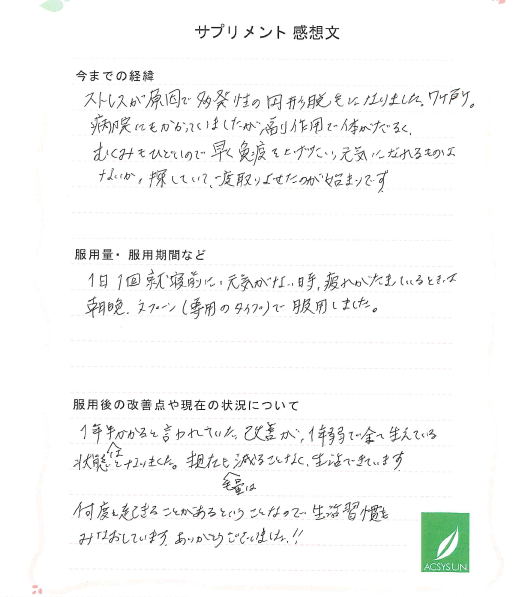 サプリメント 感想文
今までの経緯
ストレスが原因で多発性の円形脱毛になりました。
病院にもかかっていましたが、副作用で体がだるく、
むくみもひどいので早く免疫を上げたい、元気になれるものは
ないか、探していて、一度取りよせたのが始まりです
服用量・服用期間など
1日1回就寝前に、元気がない時、疲れがたまっているときは
朝晩、スプーン(専用のタイプ)で服用しました。
服用後の改善点や現在の状況について
1年半かかると言われていた改善が、1年弱で全て生えている
状態になりました。現在も毛量は減ることなく、生活できています
何度も起きることがあるということなので生活習慣も
みなおしています。ありがとうございました!!
ACSYS LIN